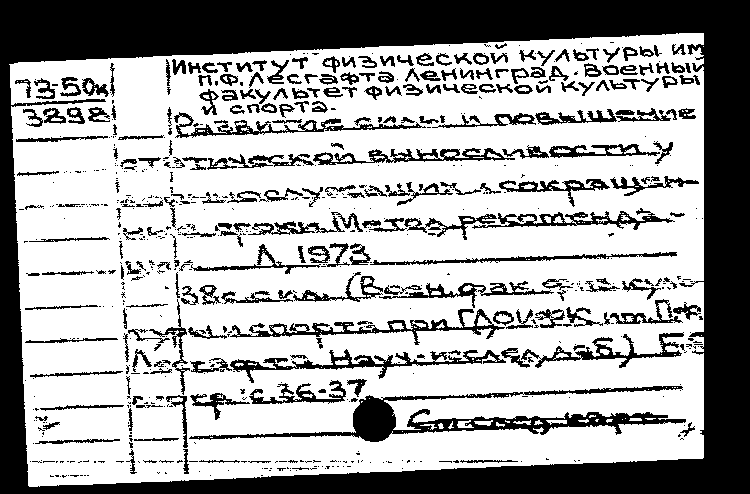 Институт физической культуры им
73-50к
П.Ф. Лесгафта Ленинград. Военный
3898
факультет физической культуры
и спорта.
Развитие силы и повышение
статической выносливости у
военнослужащих в сокращен-
ные сроки. Метод. рекоменда-
ции. Л., 1973.
38 с. с ил. (Воен. фак. физ. куль-
туры и спорта при ГДОИФК им. П.Ф.
Лесгафта. Науч.-исслед. лаб.)
с. 36-37.
См след. карт.